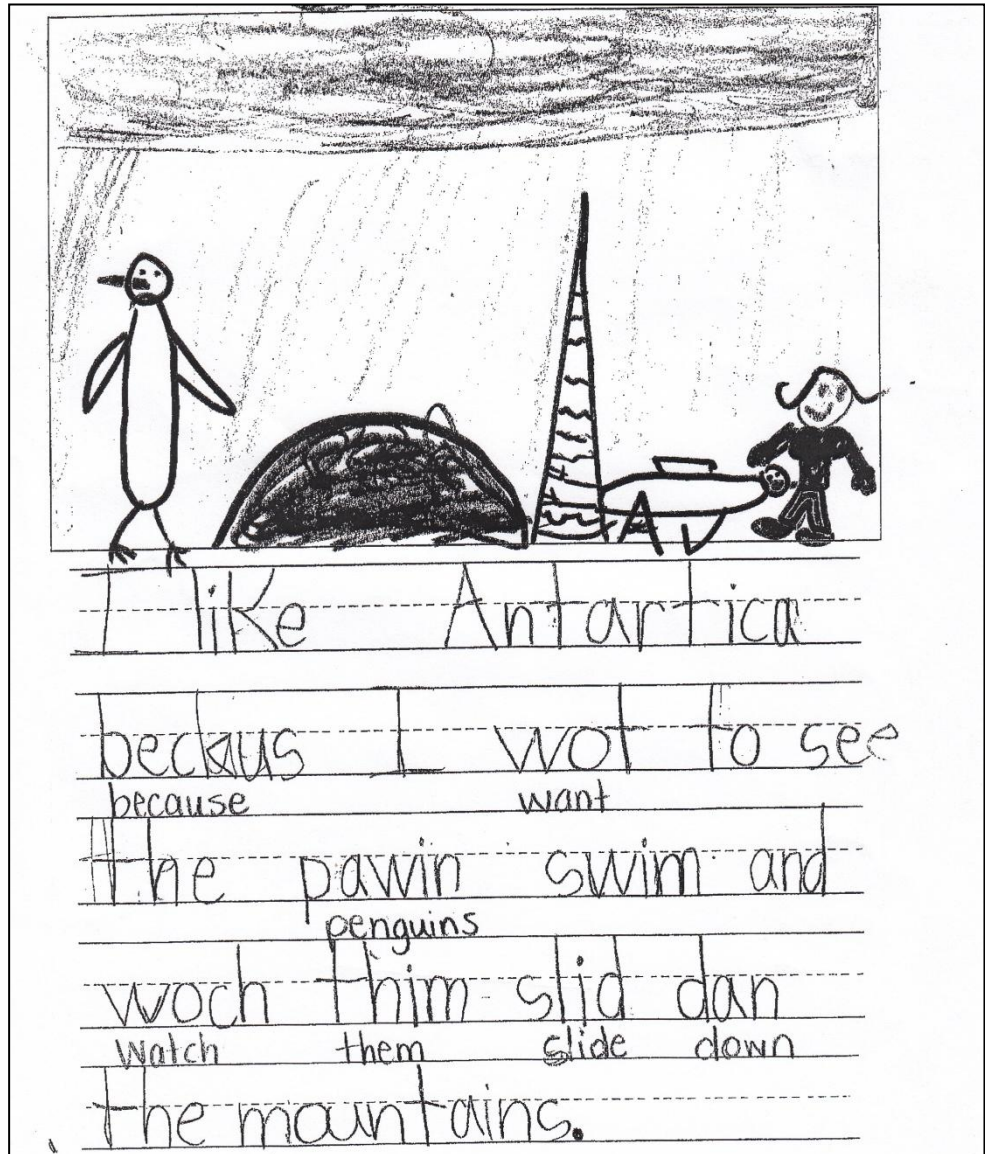 I like Antartica
beckaus I wot to see
because want
the pawin swim and
penguins
woch thim slid dan
watch them slide down
the mountains.